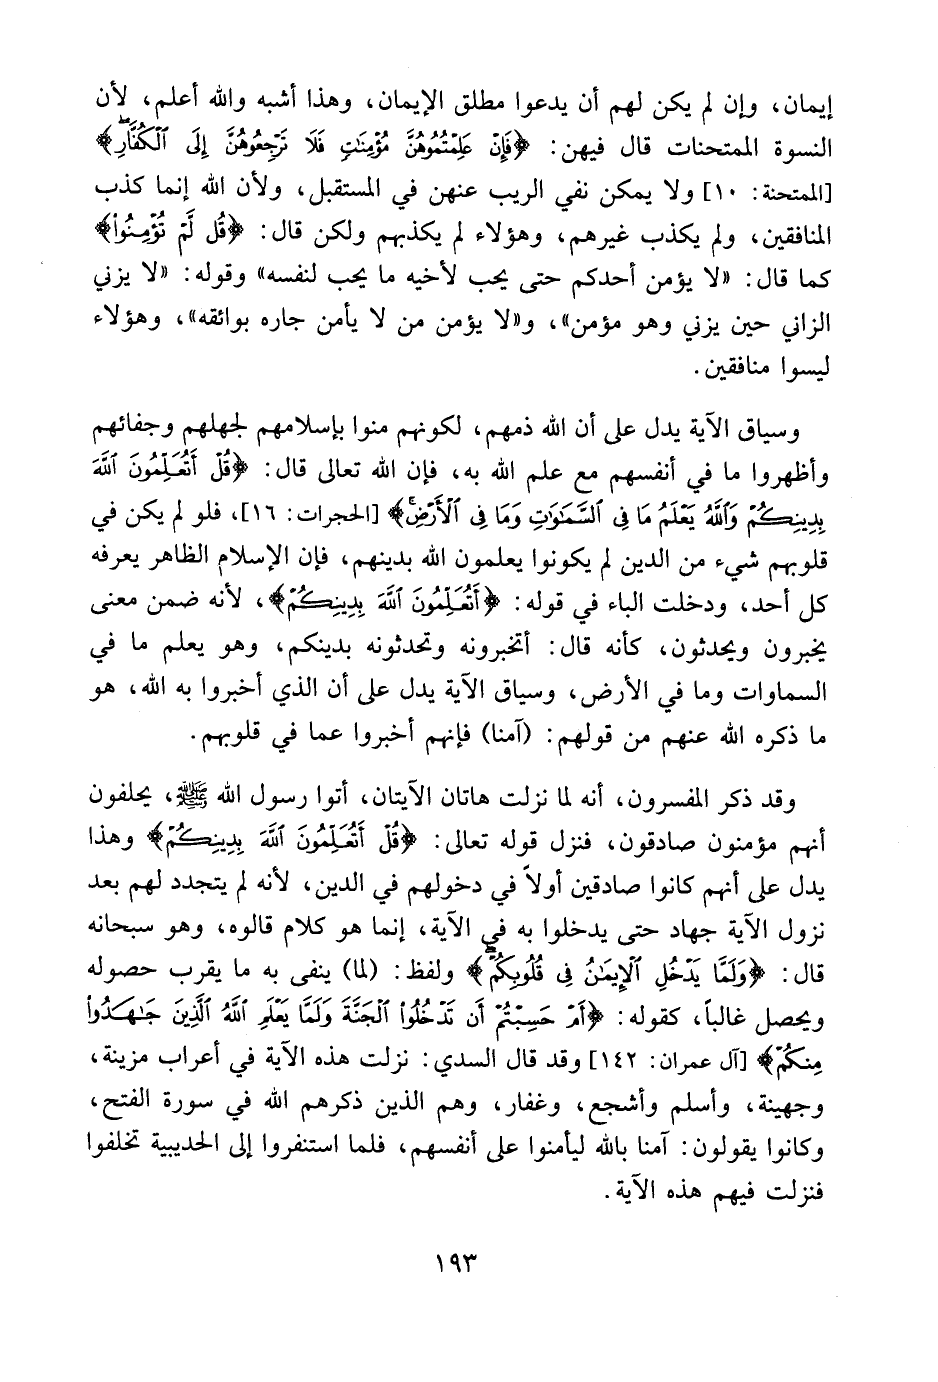 إيمان، وإن لم يكن لهم أن يدعوا مطلق الإيمان، وهذا أشبه والله أعلم، لأن
النسوة الممتحنات قال فيهن: ﴿فَإِنْ عَلِمْتُمُوهُنَّ مُؤْمِنَٰتٍ فَلَا تَرْجِعُوهُنَّ إِلَى ٱلْكُفَّارِ﴾
[الممتحنة: ١٠] ولا يمكن نفي الريب عنهن في المستقبل، ولأن الله إنما كذب
المنافقين، ولم يكذب غيرهم، وهؤلاء لم يكذبهم ولكن قال: ﴿قُل لَّمْ تُؤْمِنُوا۟﴾
كما قال: «لا يؤمن أحدكم حتى يحب لأخيه ما يحب لنفسه» وقوله: «لا يزني
الزاني حين يزني وهو مؤمن»، و«لا يؤمن من لا يأمن جاره بوائقه»، وهؤلاء
ليسوا منافقين.
وسياق الآية يدل على أن الله ذمهم، لكونهم منوا بإسلامهم لجهلهم وجفائهم
وأظهروا ما في أنفسهم مع علم الله به، فإن الله تعالى قال: ﴿قُلْ أَتُعَلِّمُونَ ٱللَّهَ
بِدِينِكُمْ وَٱللَّهُ يَعْلَمُ مَا فِى ٱلسَّمَٰوَٰتِ وَمَا فِى ٱلْأَرْضِ﴾ [الحجرات: ١٦]، فلو لم يكن في
قلوبهم شيء من الدين لم يكونوا يعلمون الله بدينهم، فإن الإسلام الظاهر يعرفه
كل أحد، ودخلت الباء في قوله: ﴿أَتُعَلِّمُونَ ٱللَّهَ بِدِينِكُمْ﴾، لأنه ضمن معنى
يخبرون ويحدثون، كأنه قال: أتخبرونه وتحدثونه بدينكم، وهو يعلم ما في
السماوات وما في الأرض، وسياق الآية يدل على أن الذي أخبروا به الله، هو
ما ذكره الله عنهم من قولهم: (آمنا) فإنهم أخبروا عما في قلوبهم.
وقد ذكر المفسرون، أنه لما نزلت هاتان الآيتان، أتوا رسول الله ﷺ، يحلفون
أنهم مؤمنون صادقون، فنزل قوله تعالى: ﴿قُلْ أَتُعَلِّمُونَ ٱللَّهَ بِدِينِكُمْ﴾ وهذا
يدل على أنهم كانوا صادقين أولاً في دخولهم في الدين، لأنه لم يتجدد لهم بعد
نزول الآية جهاد حتى يدخلوا به في الآية، إنما هو كلام قالوه، وهو سبحانه
قال: ﴿وَلَمَّا يَدْخُلِ ٱلْإِيمَٰنُ فِى قُلُوبِكُمْ﴾ ولفظ: (لما) ينفى به ما يقرب حصوله
ويحصل غالباً، كقوله: ﴿أَمْ حَسِبْتُمْ أَن تَدْخُلُوا۟ ٱلْجَنَّةَ وَلَمَّا يَعْلَمِ ٱللَّهُ ٱلَّذِينَ جَٰهَدُوا۟
مِنكُمْ﴾ [آل عمران: ١٤٢] وقد قال السدي: نزلت هذه الآية في أعراب مزينة،
وجهينة، وأسلم وأشجع، وغفار، وهم الذين ذكرهم الله في سورة الفتح،
وكانوا يقولون: آمنا بالله ليأمنوا على أنفسهم، فلما استنفروا إلى الحديبية تخلفوا
فنزلت فيهم هذه الآية.
١٩٣